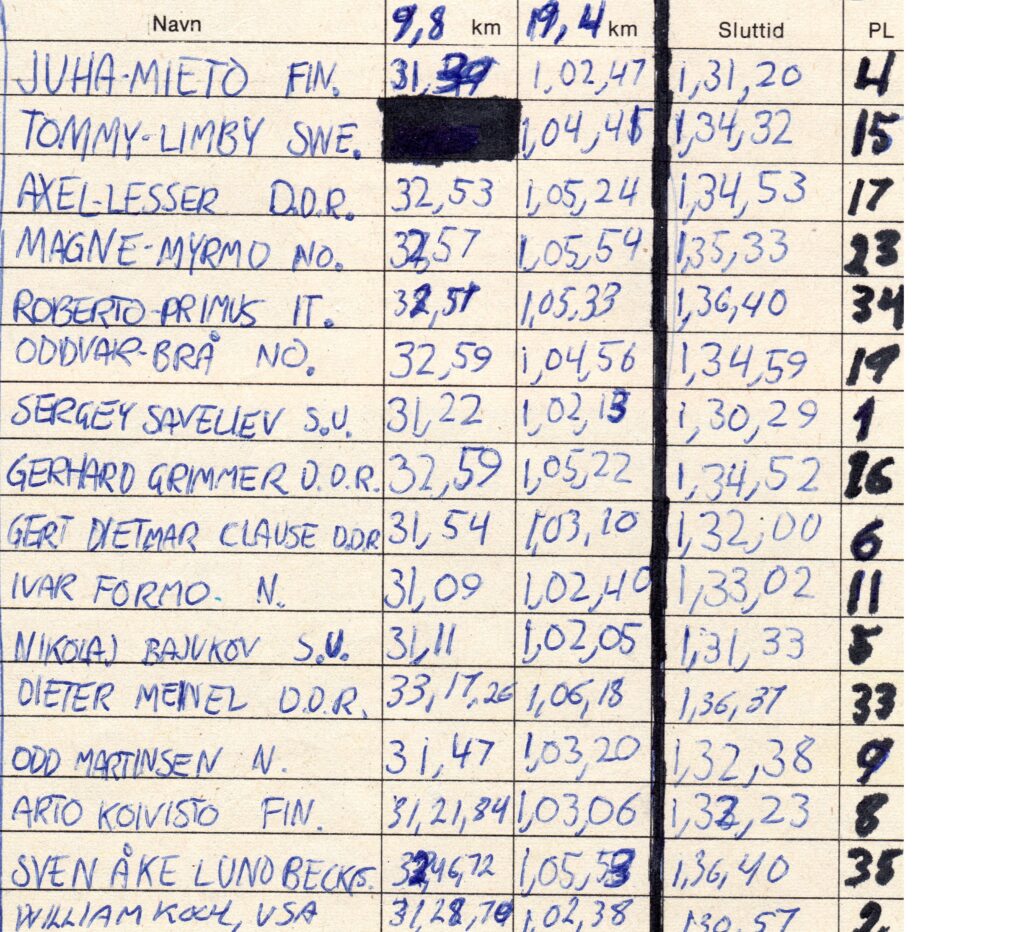 Navn 9,8 km 19,4 km Sluttid PL
JUHA-MIETO FIN. 31,39 1,02,47 1,31,20 4
TOMMY-LIMBY SWE. 1,04,45 1,34,32 15
AXEL-LESSER D.D.R. 32,53 1,05,24 1,34,53 17
MAGNE-MYRMO NO. 32,57 1,05,54 1,35,33 23
ROBERTO-PRIMUS IT. 32,51 1,05,33 1,36,40 34
ODDVAR-BRÅ NO. 32,59 1,04,56 1,34,59 19
SERGEY SAVELIEV S.U. 31,22 1,02,13 1,30,29 1
GERHARD GRIMMER D.D.R. 32,59 1,05,22 1,34,52 16
GERT DIETMAR CLAUSE D.D.R 31,54 1,03,10 1,32,00 6
IVAR FORMO. N. 31,09 1,02,40 1,33,02 11
NIKOLAJ BAJUKOV S.U. 31,11 1,02,05 1,31,33 5
DIETER MEINEL D.D.R. 33,17,26 1,06,18 1,36,37 33
ODD MARTINSEN N. 31,47 1,03,20 1,32,38 9
ARTO KOIVISTO FIN. 31,21,84 1,03,06 1,32,23 8
SVEN ÅKE LUNDBECK 32,46,72 1,05,53 1,36,40 35
WILLIAM KOCH, USA 31,28,70 1,02,38 1,30,57 2.